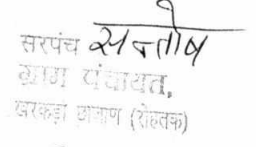 सरपंच सन्तोष
ग्राम पंचायत,
खरकड़ा (रोहतक)